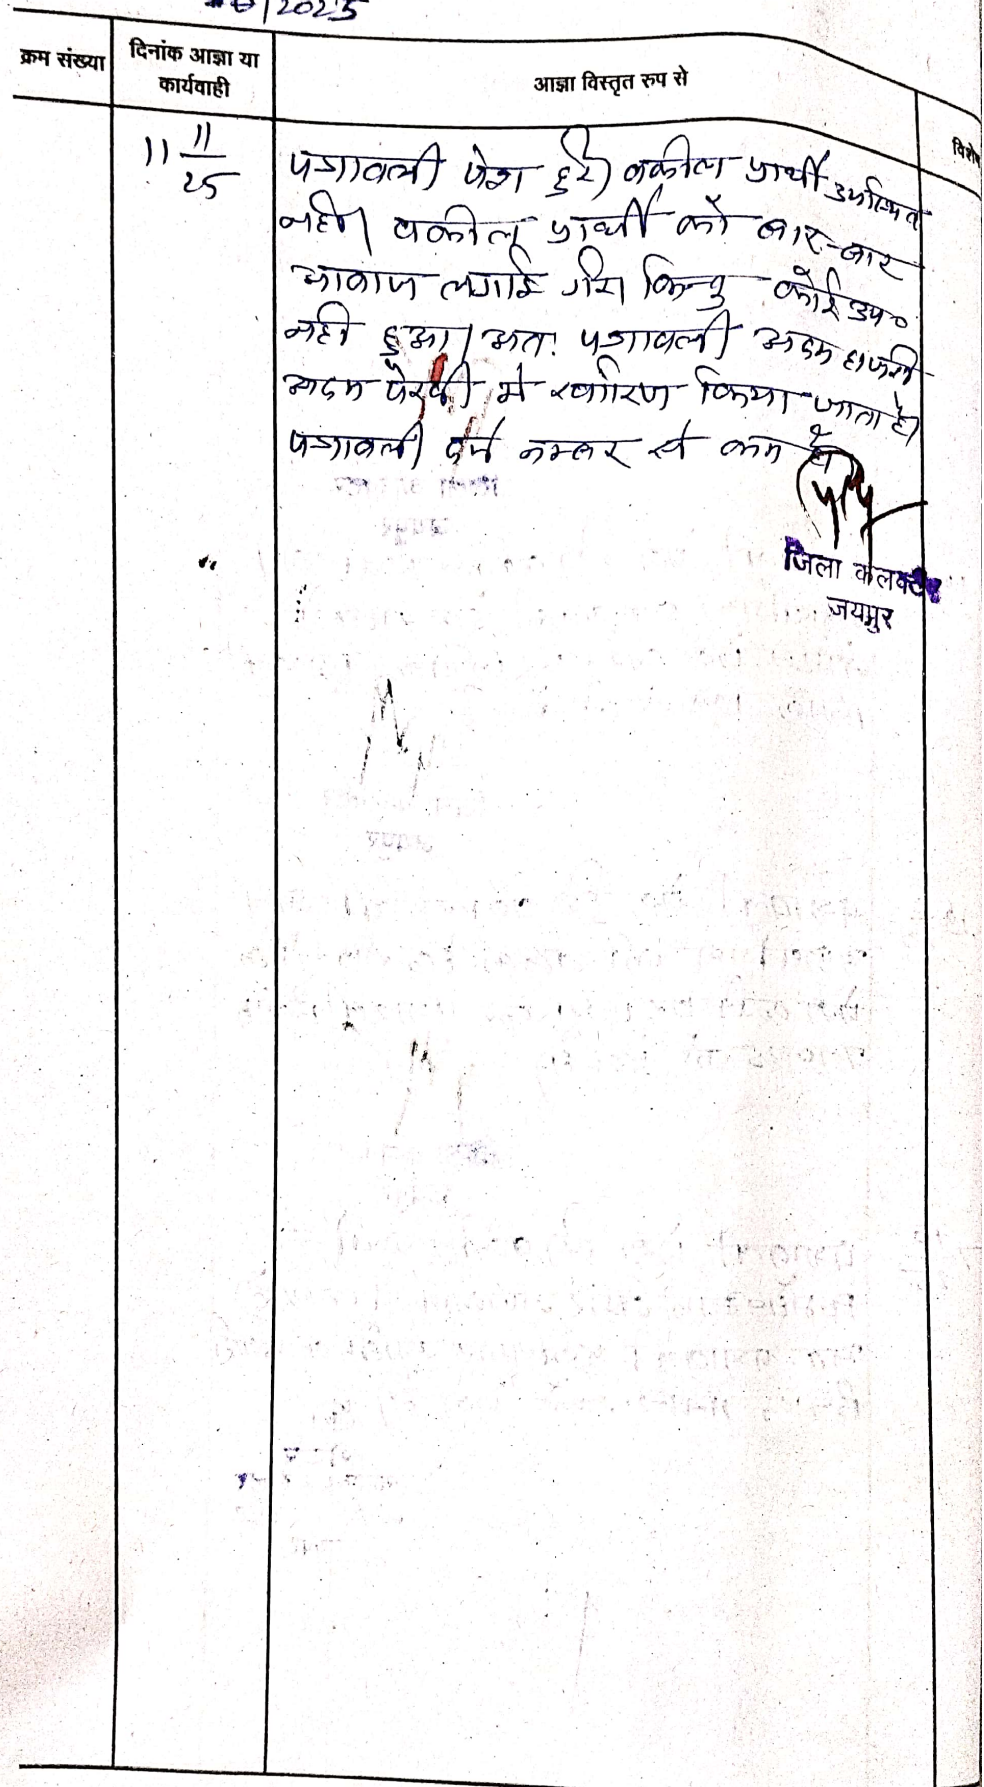 /2025
क्रम संख्या
दिनांक आज्ञा या
कार्यवाही
आज्ञा विस्तृत रुप से
विशेष
11 11/25
पत्रावली पेश हुई। वकील प्रार्थी उपस्थित
नही। वकील प्रार्थी को बार-बार
आवाज लगाई गयी किन्तु कोई उप०
नही हुआ। अतः पत्रावली अदम हाजरी
अदम पैरवी मे खारिज किया जाता है।
पत्रावली दर्ज नम्बर से कम हो
जिला कलक्टर
जयपुर